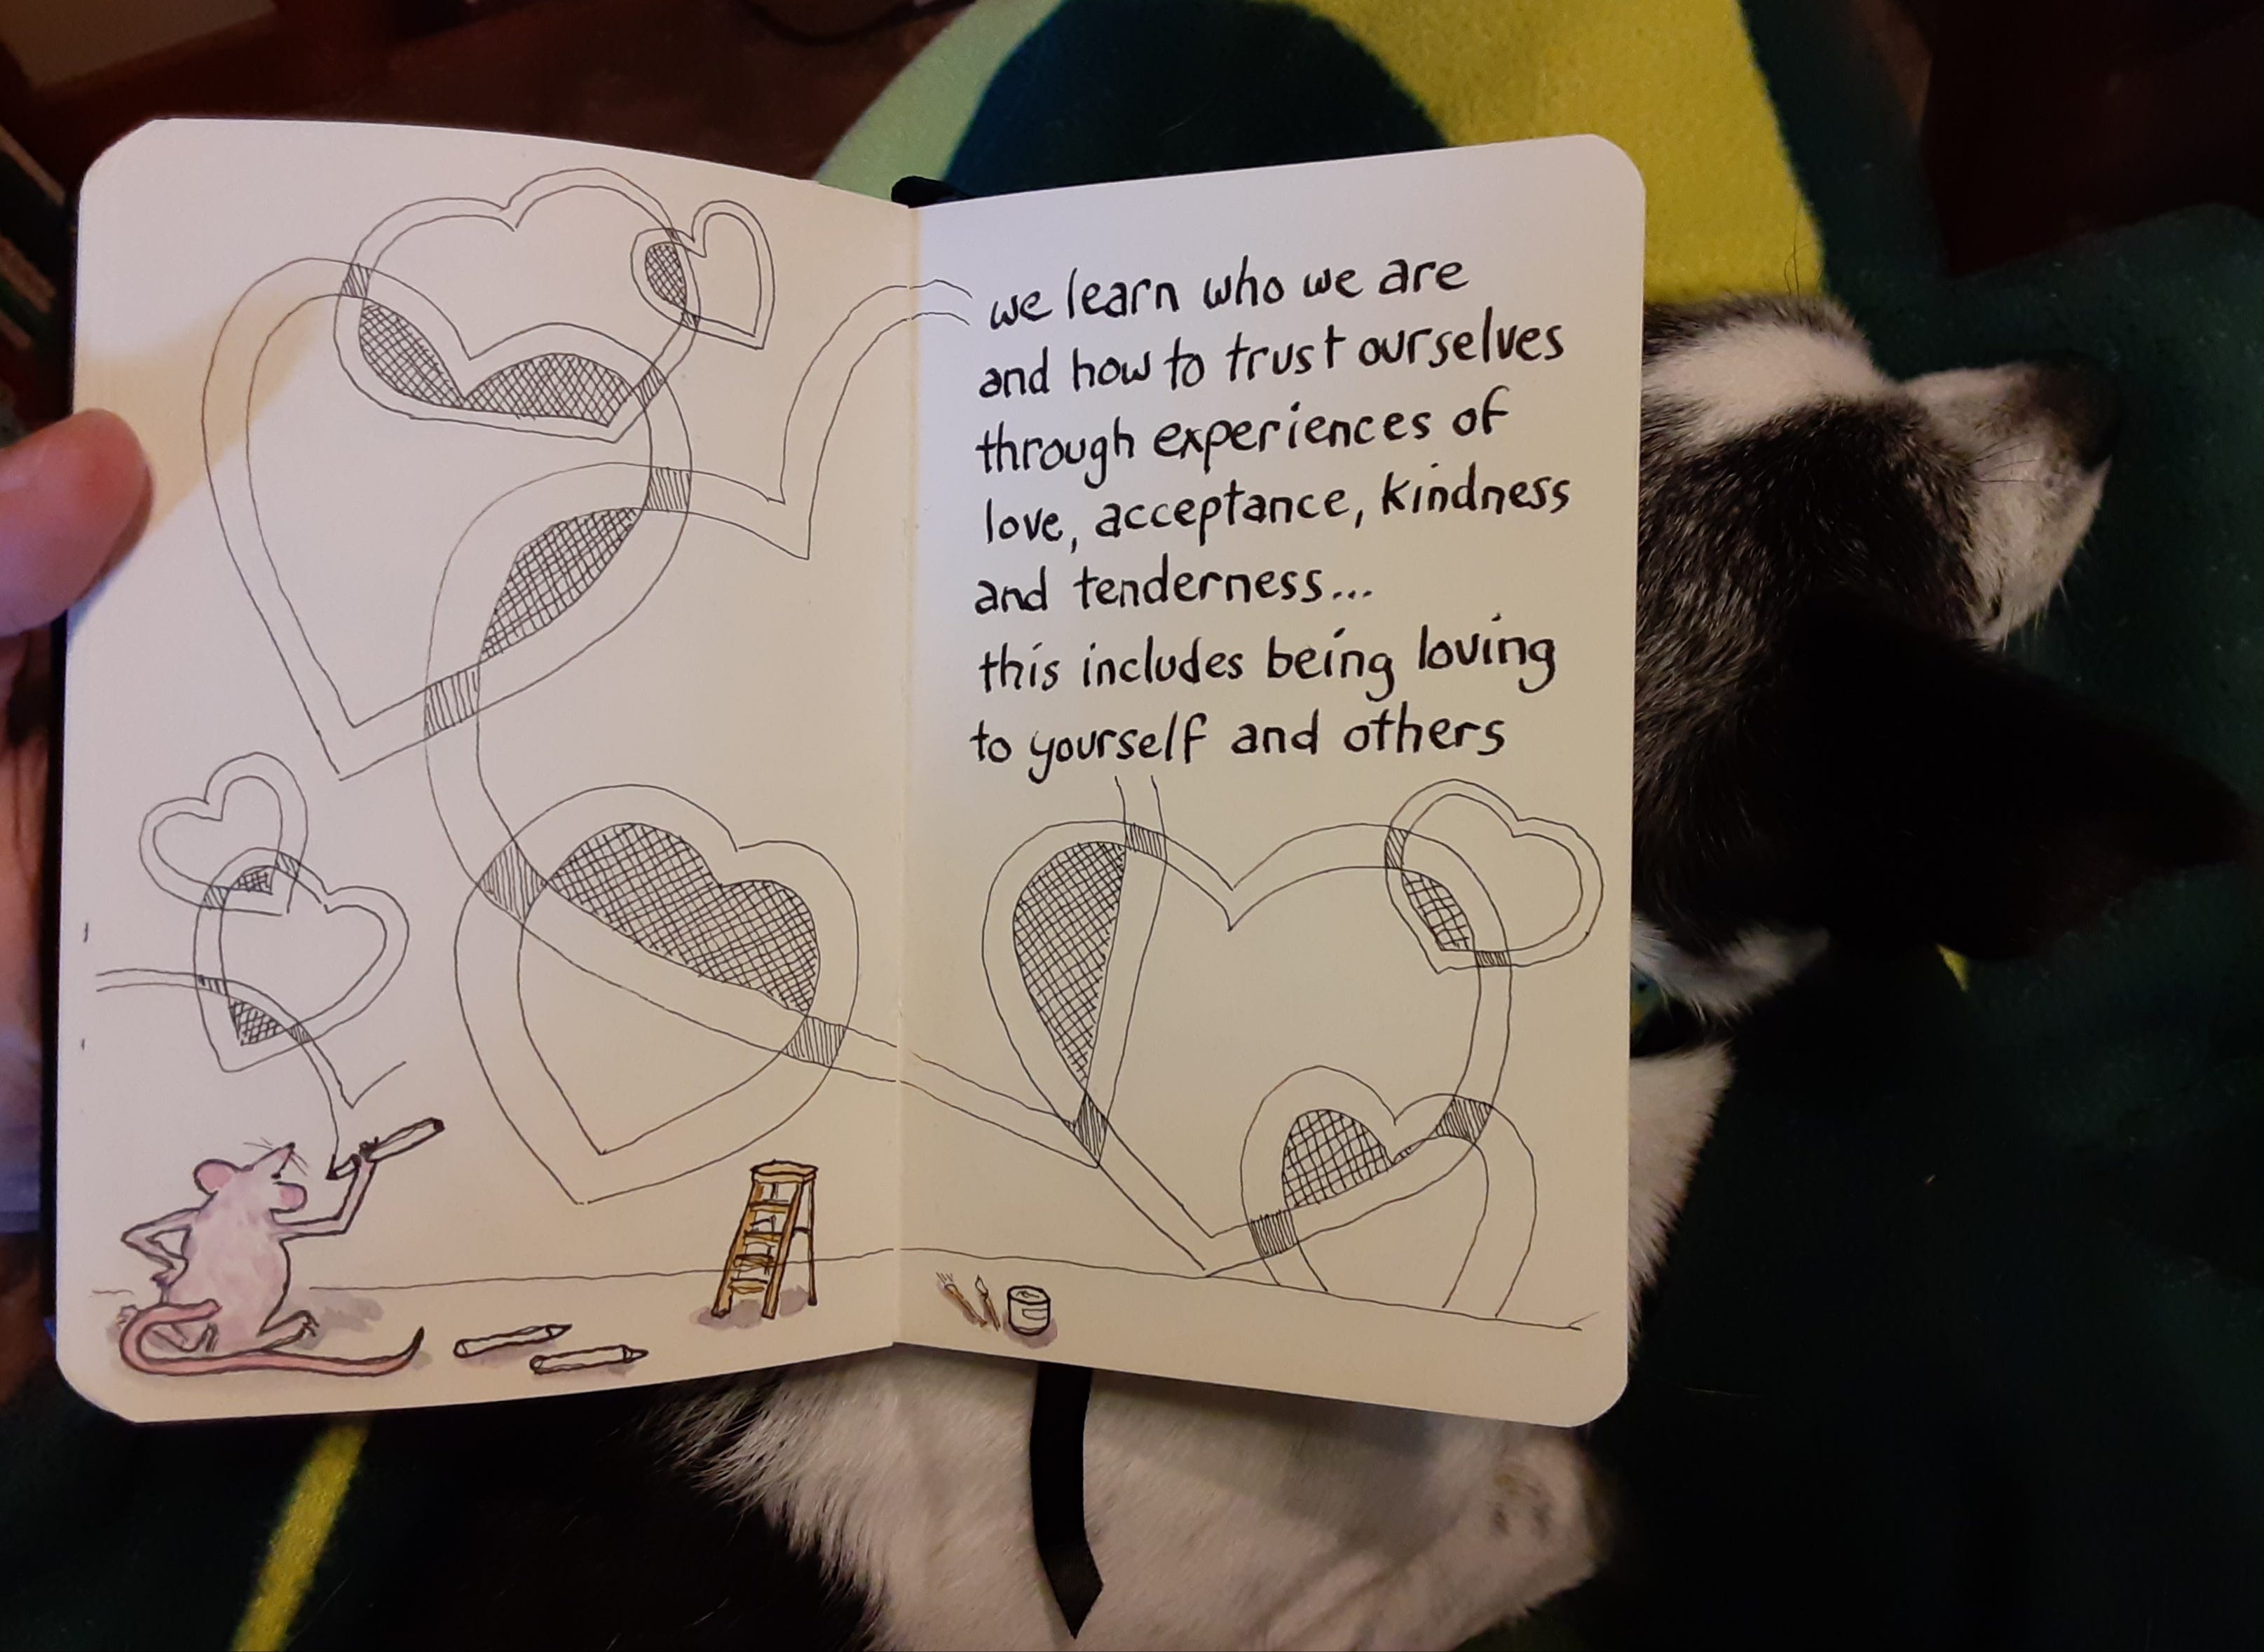 we learn who we are
and how to trust ourselves
through experiences of
love, acceptance, kindness
and tenderness...
this includes being loving
to yourself and others